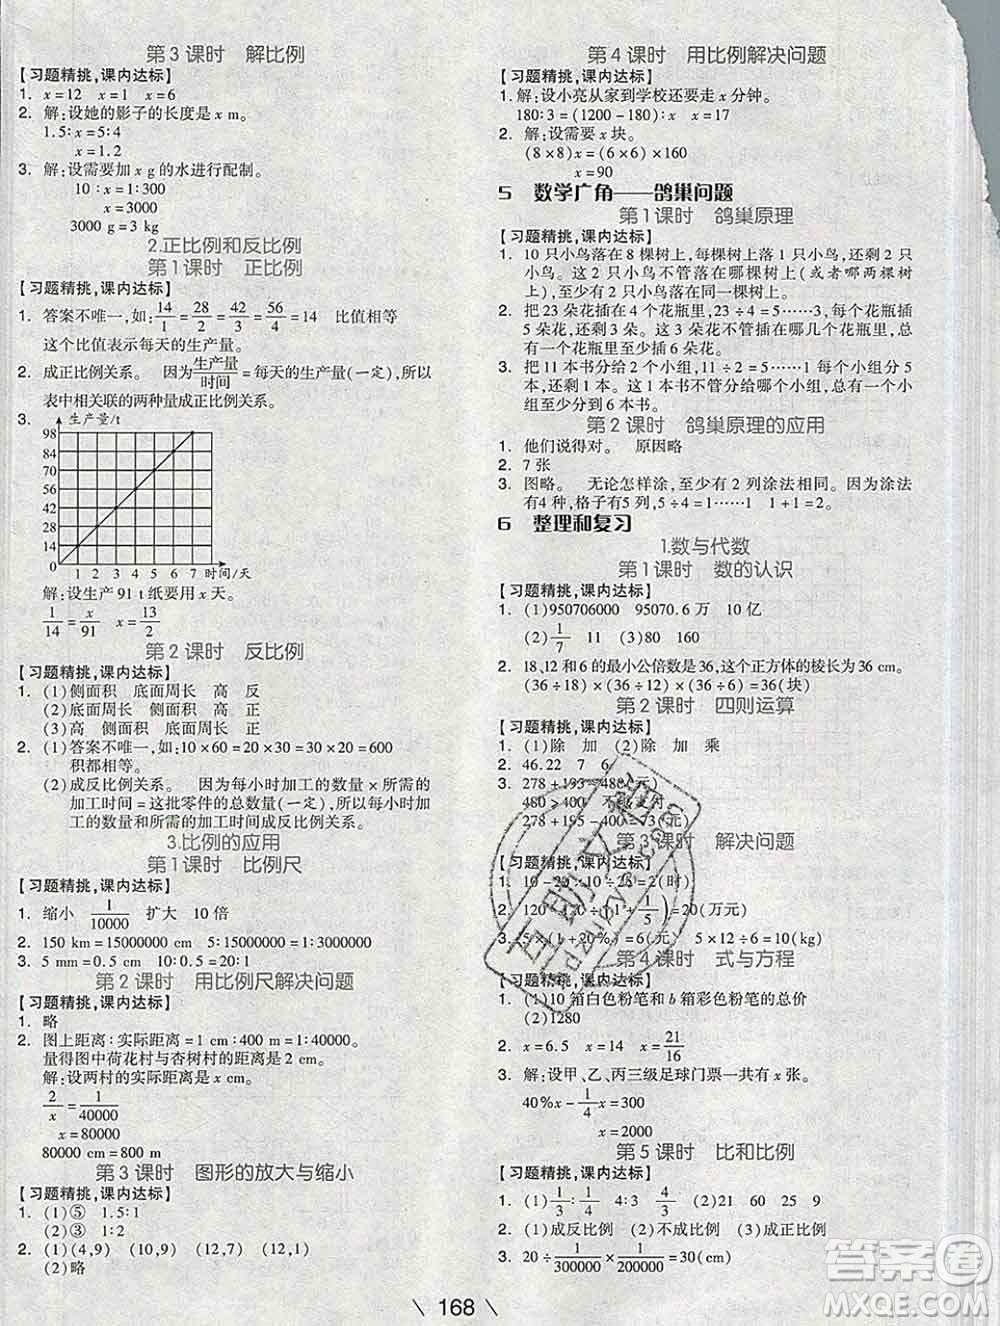 第3课时　解比例
【习题精挑,课内达标】
1. x=12　x=1　x=6
2. 解:设她的影子的长度是 x m。
1.5∶x=5∶4
x=1.2
3. 解:设需要加 x g 的水进行配制。
10∶x=1∶300
x=3000
3000 g=3 kg
2.正比例和反比例
第1课时　正比例
【习题精挑,课内达标】
1. 答案不唯一,如:14/1=28/2=42/3=56/4=14　比值相等
这个比值表示每天的生产量。
2. 成正比例关系。　因为生产量/时间=每天的生产量(一定),所以
表中相关联的两种量成正比例关系。
3. 生产量/t
98
84
70
56
42
28
14
0
1 2 3 4 5 6 7 时间/天
解:设生产 91 t 纸要用 x 天。
1/14=x/91　x=13/2
第2课时　反比例
【习题精挑,课内达标】
1. (1)侧面积　底面周长　高　反
(2)底面周长　侧面积　高　正
(3)高　侧面积　底面周长　正
2. (1)答案不唯一,如:10×60=20×30=15×40=600
积都相等。
(2)成反比例关系。　因为每小时加工的数量×所需的
加工时间=这批零件的总数量(一定),所以每小时加
工的数量和所需的加工时间成反比例关系。
3.比例的应用
第1课时　比例尺
【习题精挑,课内达标】
1. 缩小　1/10000　扩大　10倍
2. 150 km=15000000 cm　5∶15000000=1∶3000000
3. 5 mm=0.5 cm　10∶0.5=20∶1
第2课时　用比例尺解决问题
【习题精挑,课内达标】
1. 略
2. 图上距离∶实际距离=1 cm∶400 m=1∶40000。
量得图中荷花村与杏树村的距离是 2 cm。
解:设两村的实际距离是 x cm。
2/x=1/40000
x=80000
80000 cm=800 m
第3课时　图形的放大与缩小
【习题精挑,课内达标】
1. (1)⑤　1.5∶1
(2)③　1∶2
2. (1)(4,9)　(10,9)　(12,7)　(12,1)
(2)略
第4课时　用比例解决问题
【习题精挑,课内达标】
1. 解:设小亮从家到学校还要走 x 分钟。
180∶3=(1200-180)∶x　x=17
2. 解:设需要 x 块。
(8×8)x=(6×6)×160
x=90
5　数学广角——鸽巢问题
第1课时　鸽巢原理
【习题精挑,课内达标】
1. 10 只小鸟落在 8 棵树上,每棵树上落 1 只小鸟,还剩 2 只
小鸟。这 2 只小鸟不管落在哪棵树上(或者哪两棵树
上),至少有 2 只小鸟落在同一棵树上。
2. 把 23 朵花插在 4 个花瓶里,23÷4=5……3,每个花瓶插
5 朵花,还剩 3 朵花。这 3 朵花不管插在哪几个花瓶里,总
有一个花瓶里至少插 6 朵花。
3. 把 11 本书分给 2 个小组,11÷2=5……1,每个小组分 5
本,还剩 1 本。这 1 本书不管分给哪个小组,总有一个小
组至少分到 6 本书。
第2课时　鸽巢原理的应用
1. 他们说得对。　原因略
2. 7 张
3. 图略。　无论怎样涂,至少有 2 列涂法相同。因为涂法
有4 种,格子有5 列,5÷4=1……1　1+1=2。
6　整理和复习
1.数与代数
第1课时　数的认识
【习题精挑,课内达标】
1. (1)950706000　95070.6 万　10 亿
(2)1/7　11　(3)8　160
2. 18、12 和 6 的最小公倍数是 36,这个正方体的棱长为 36 cm。
(36÷18)×(36÷12)×(36÷6)=36(块)
第2课时　四则运算
【习题精挑,课内达标】
1. (1)除　加　(2)除　加　乘
2. 46.22　7　6
3. 278+195=480(元)
480>400　不够支付
278+195-400=73(元)
第3课时　解决问题
【习题精挑,课内达标】
2. =20(万元)
3. 5×(1+20%)=6(元)　5×12÷6=10(本)
第4课时　式与方程
【习题精挑,课内达标】
1. (1)10 箱白色粉笔和 b 箱彩色粉笔的总价
(2)1280
2. x=6.5　x=14　x=21/16
3. 解:设甲、乙、丙三级足球门票一共有 x 张。
40%x-1/4x=300
x=2000
第5课时　比和比例
【习题精挑,课内达标】
1. (1)1/3∶1/4　4∶3　4/3　(2)21　60　25　9
2. (1)成反比例　(2)不成比例　(3)成正比例
3. 20÷1/300000×1/200000=30(cm)
168
答案圈
MXQE.COM